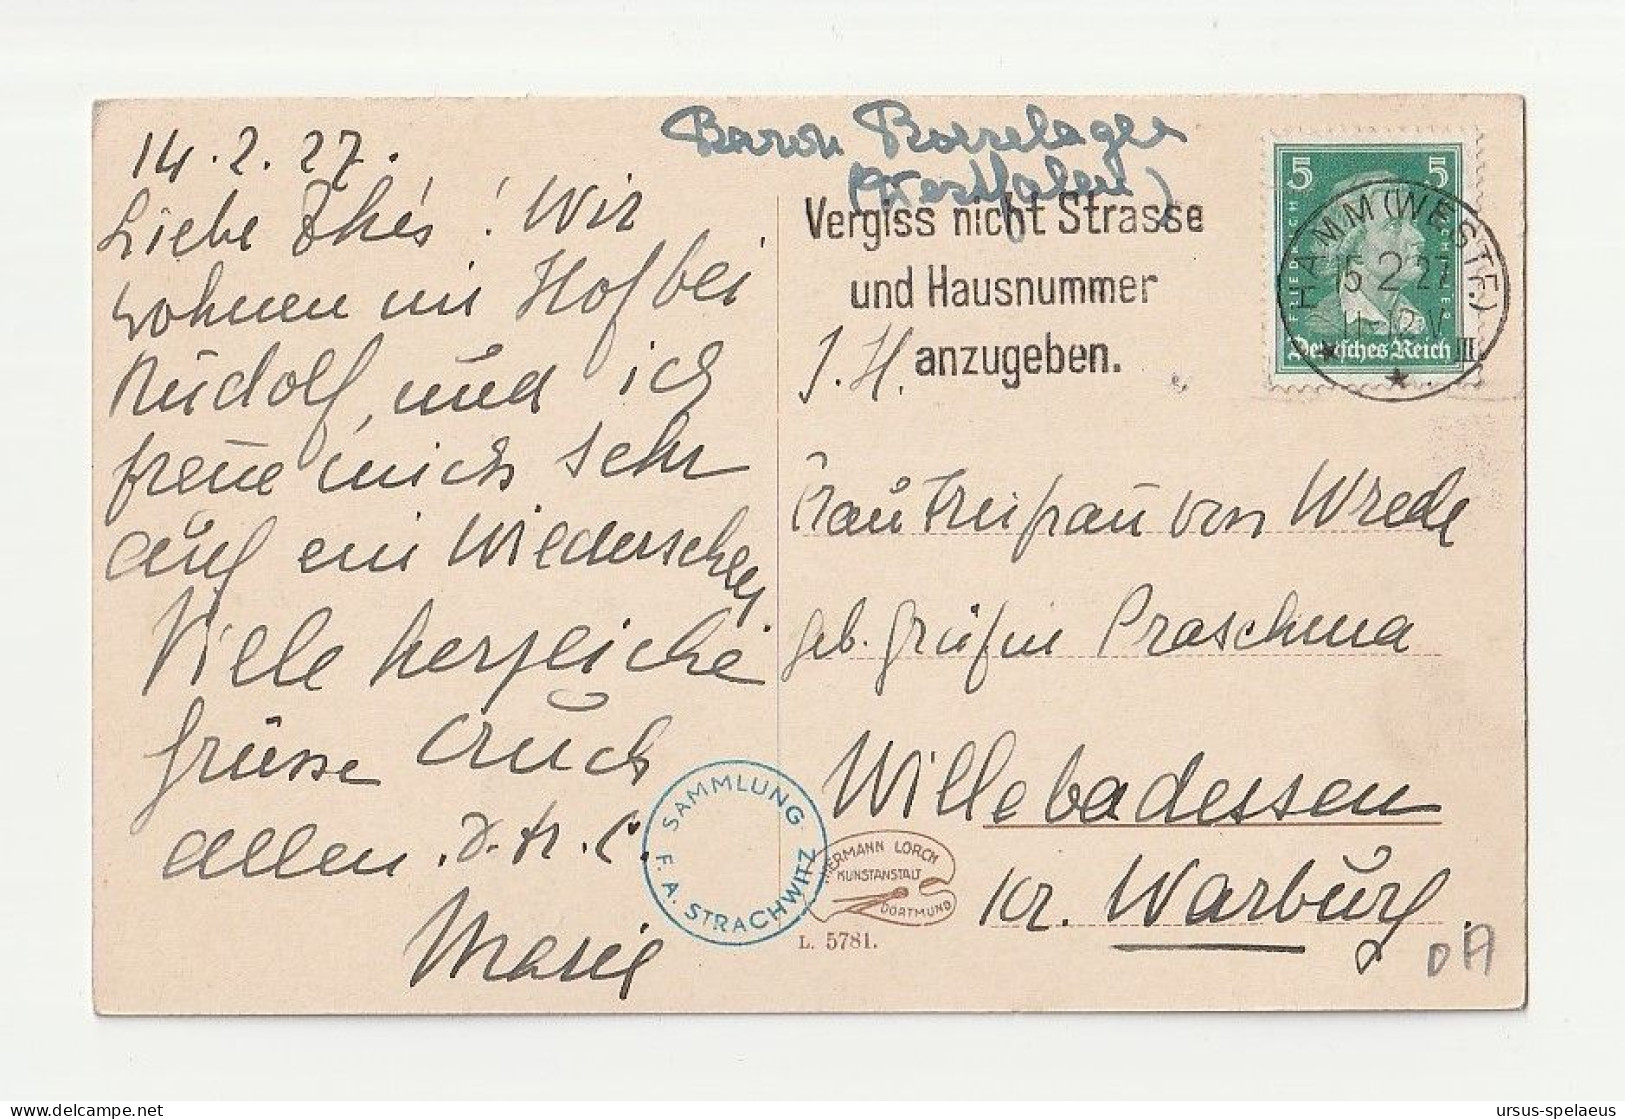 14.2.27.
Liebe Thés! Wir
wohnen im Hof bei
Rudolf, und ich
freue mich sehr
auf ein Wiedersehen
Viele herzliche
Grüsse Euch
allen.
Marie
Baron
(Westfalen)
Vergiss nicht Strasse
und Hausnummer
anzugeben.
I. H.
5 5
FRIEDRICH SCHILLER
Deutsches Reich
HAMM (WESTF.)
15 2 27
11-12 V
III
Frau Freifrau von Wrede
geb. Gräfin Praschma
Willebadessen
Kr. Warburg.
SAMMLUNG
F. A. STRACHWITZ
HERMANN LORCH
KUNSTANSTALT
DORTMUND
L. 5781.
delcampe.net
ursus-spelaeus